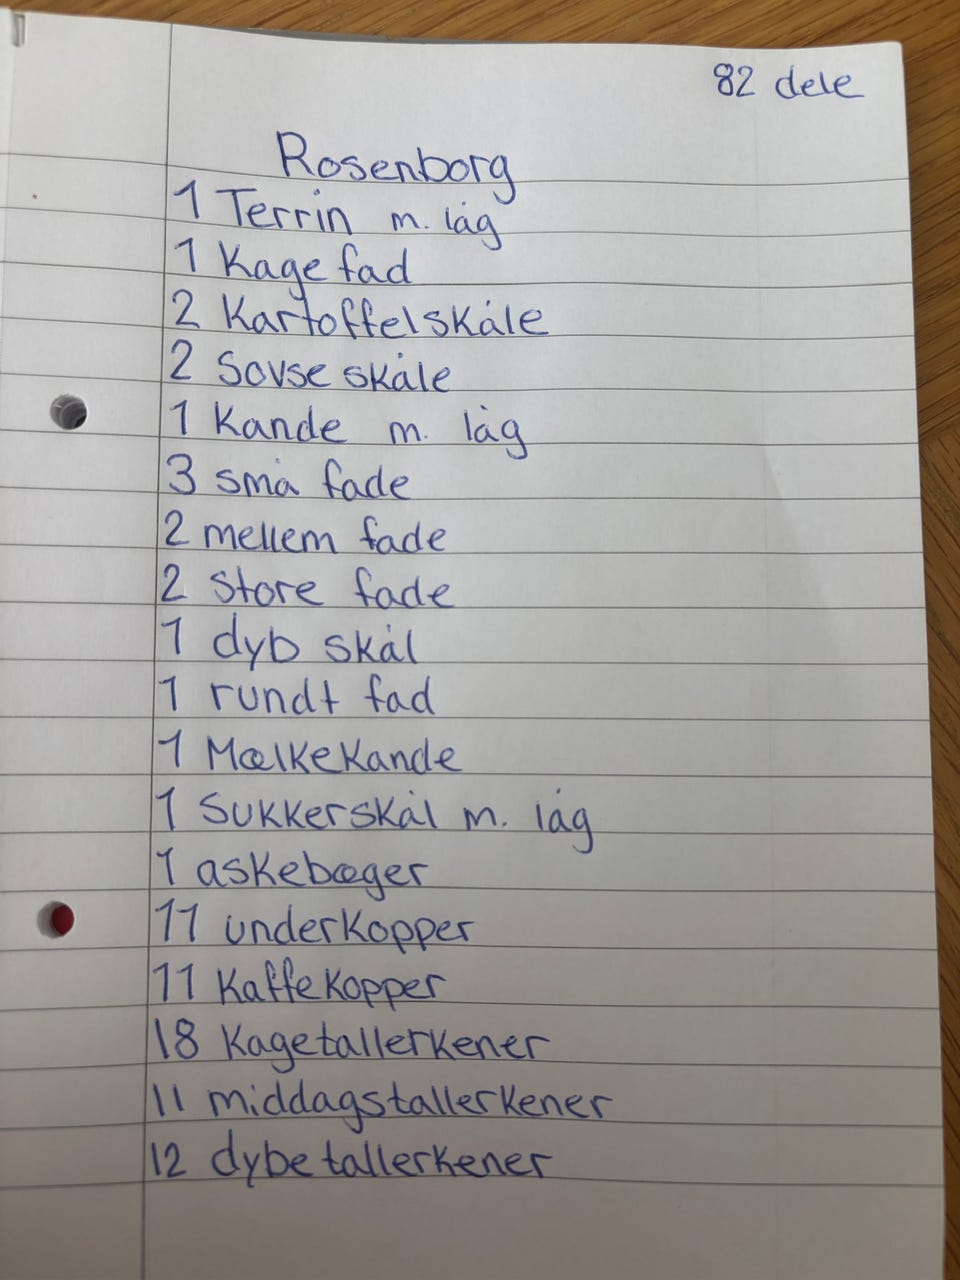 82 dele
Rosenborg
1 Terrin m. låg
1 Kage fad
2 Kartoffelskåle
2 Sovse skåle
1 Kande m. låg
3 små fade
2 mellem fade
2 Store fade
1 dyb skål
1 rundt fad
1 Mælkekande
1 Sukkerskål m. låg
1 askebæger
11 underkopper
11 Kaffekopper
18 Kagetallerkener
11 middagstallerkener
12 dybe tallerkener